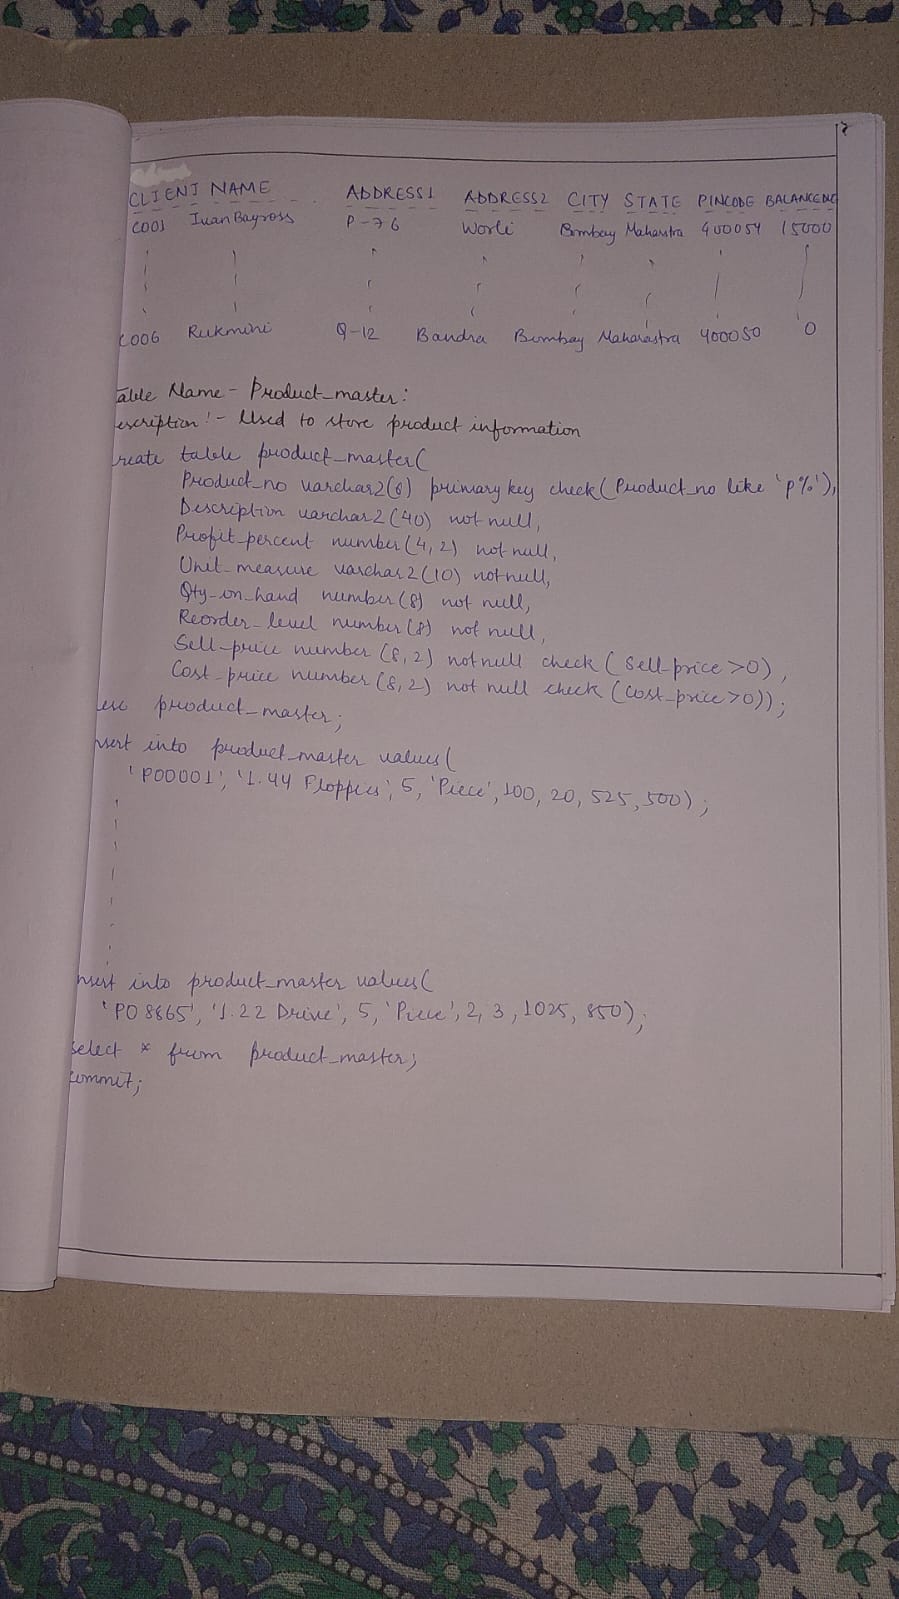 7
CLIENT NAME ADDRESS1 ADDRESS2 CITY STATE PINCODE
C001 Ivan Bayross P-76 Worli Bombay 400054 15000
C006 Rukmini Q-12 Bandra Bombay Maharastra 400050 0
able Name - Product_master:
escription:- Used to store product information
reate table product_master(
Product_no varchar2(6) primary key check(Product_no like 'p%'),
Description varchar2(40) not null,
Profit_percent number(4,2) not null,
Unit_measure varchar2(10) not null,
Qty_on_hand number(8) not null,
Reorder_level number(8) not null,
Sell_price number(8,2) not null check(Sell_price>0),
Cost_price number(8,2) not null check(Cost_price>0));
esc product_master;
nsert into product_master values(
'P00001', '1.44 Floppies', 5, 'Piece', 100, 20, 525, 500);
nsert into product_master values(
'P08865', '1.22 Drive', 5, 'Piece', 2, 3, 1025, 850);
select * from product_master;
commit;